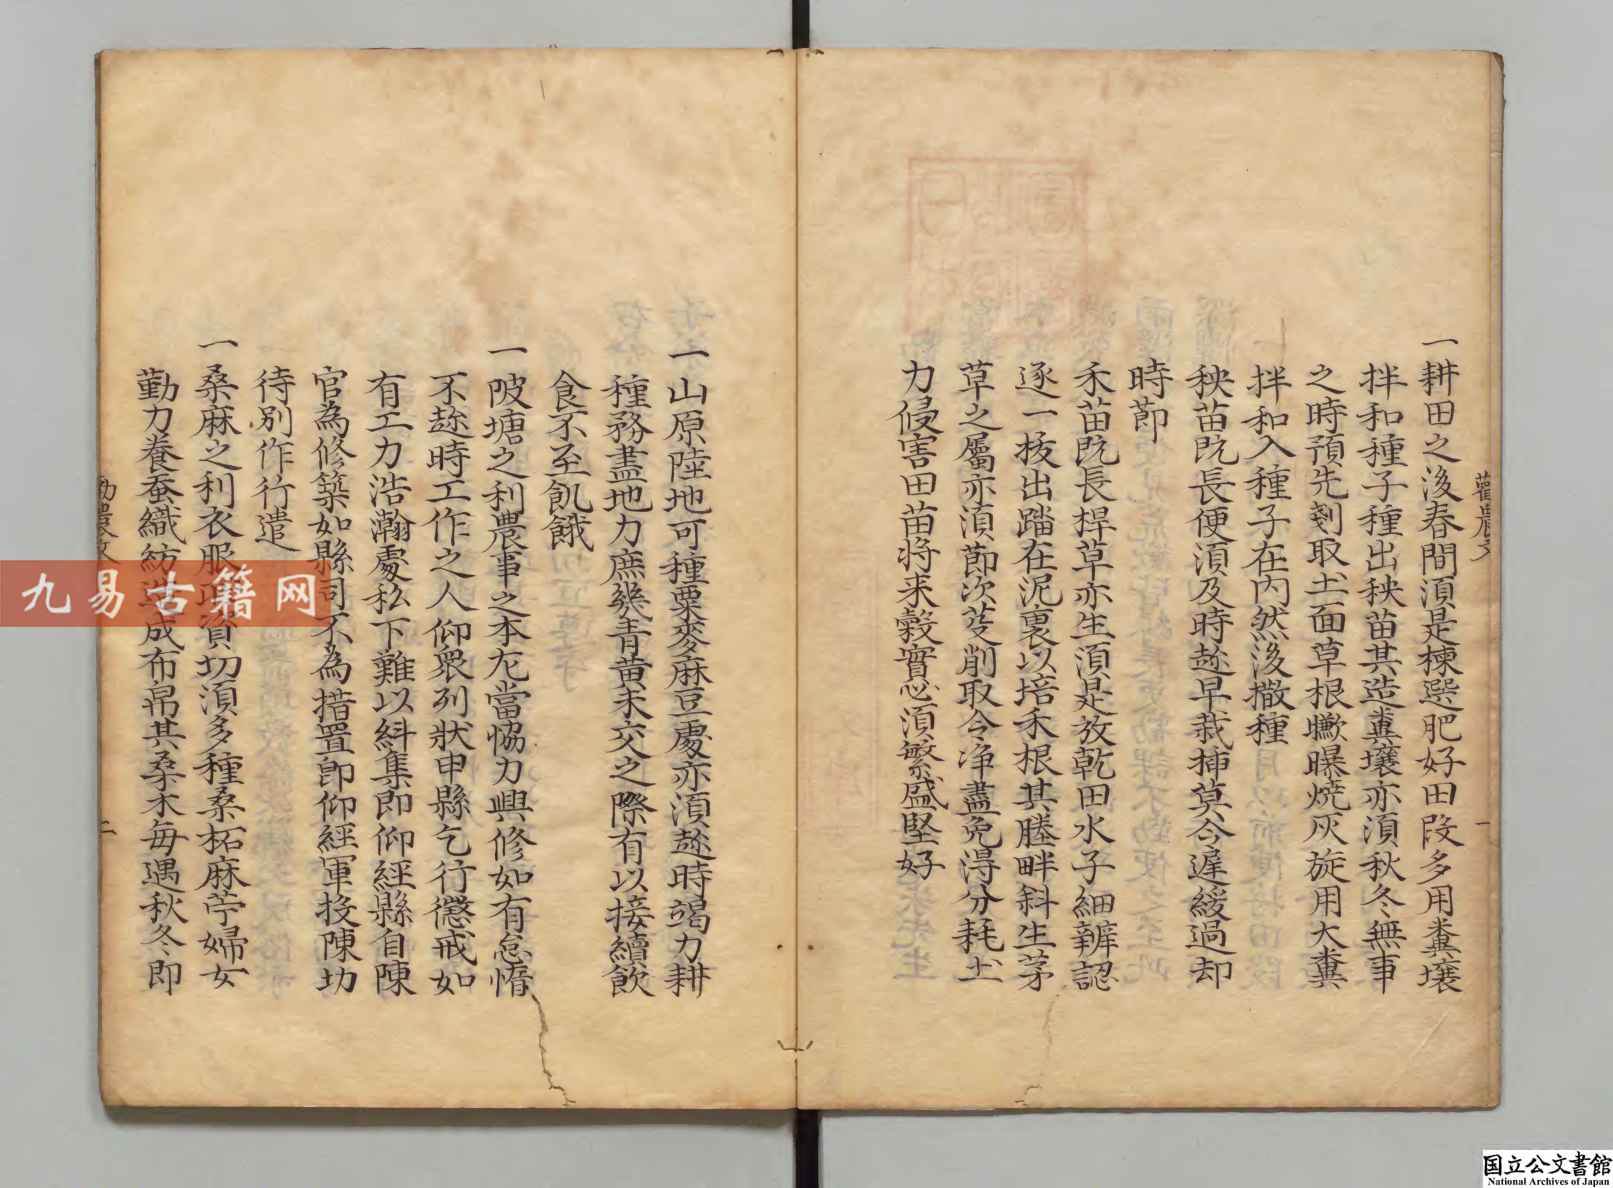 勸農文
一耕田之後春間湏是揀選肥好田段多用糞壤
拌和種子種出秧苗其造糞壤亦湏秋冬無事
之時預先剗取土面草根曬曝燒灰旋用大糞
拌和入種子在內然後撒種
秧苗既長便湏及時趂早栽揷莫令遲緩過却
時節
禾苗既長稈草亦生湏是放乾田水子細辨認
逐一拔出踏在泥裏以培禾根其塍畔斜生茅
草之屬亦湏節次芟削取令净盡免得分耗土
力侵害田苗将来穀實必湏繁盛堅好
一
一山原陸地可種粟麥麻豆處亦湏趂時竭力耕
種務盡地力庶幾青黄未交之際有以接續飲
食不至飢餓
一陂塘之利農事之本尤當恊力興修如有怠惰
不趂時工作之人仰衆列狀申縣乞行懲戒如
有工力浩瀚處私下難以糾集即仰經縣自陳
官為修築如縣司不為措置卽仰經軍投陳切
待別作行遣
一桑麻之利衣服所資切湏多種桑柘麻苧婦女
勤力養蚕織紡造成布帛其桑木每遇秋冬即
勸農文
二
九易古籍网
国立公文書館
National Archives of Japan